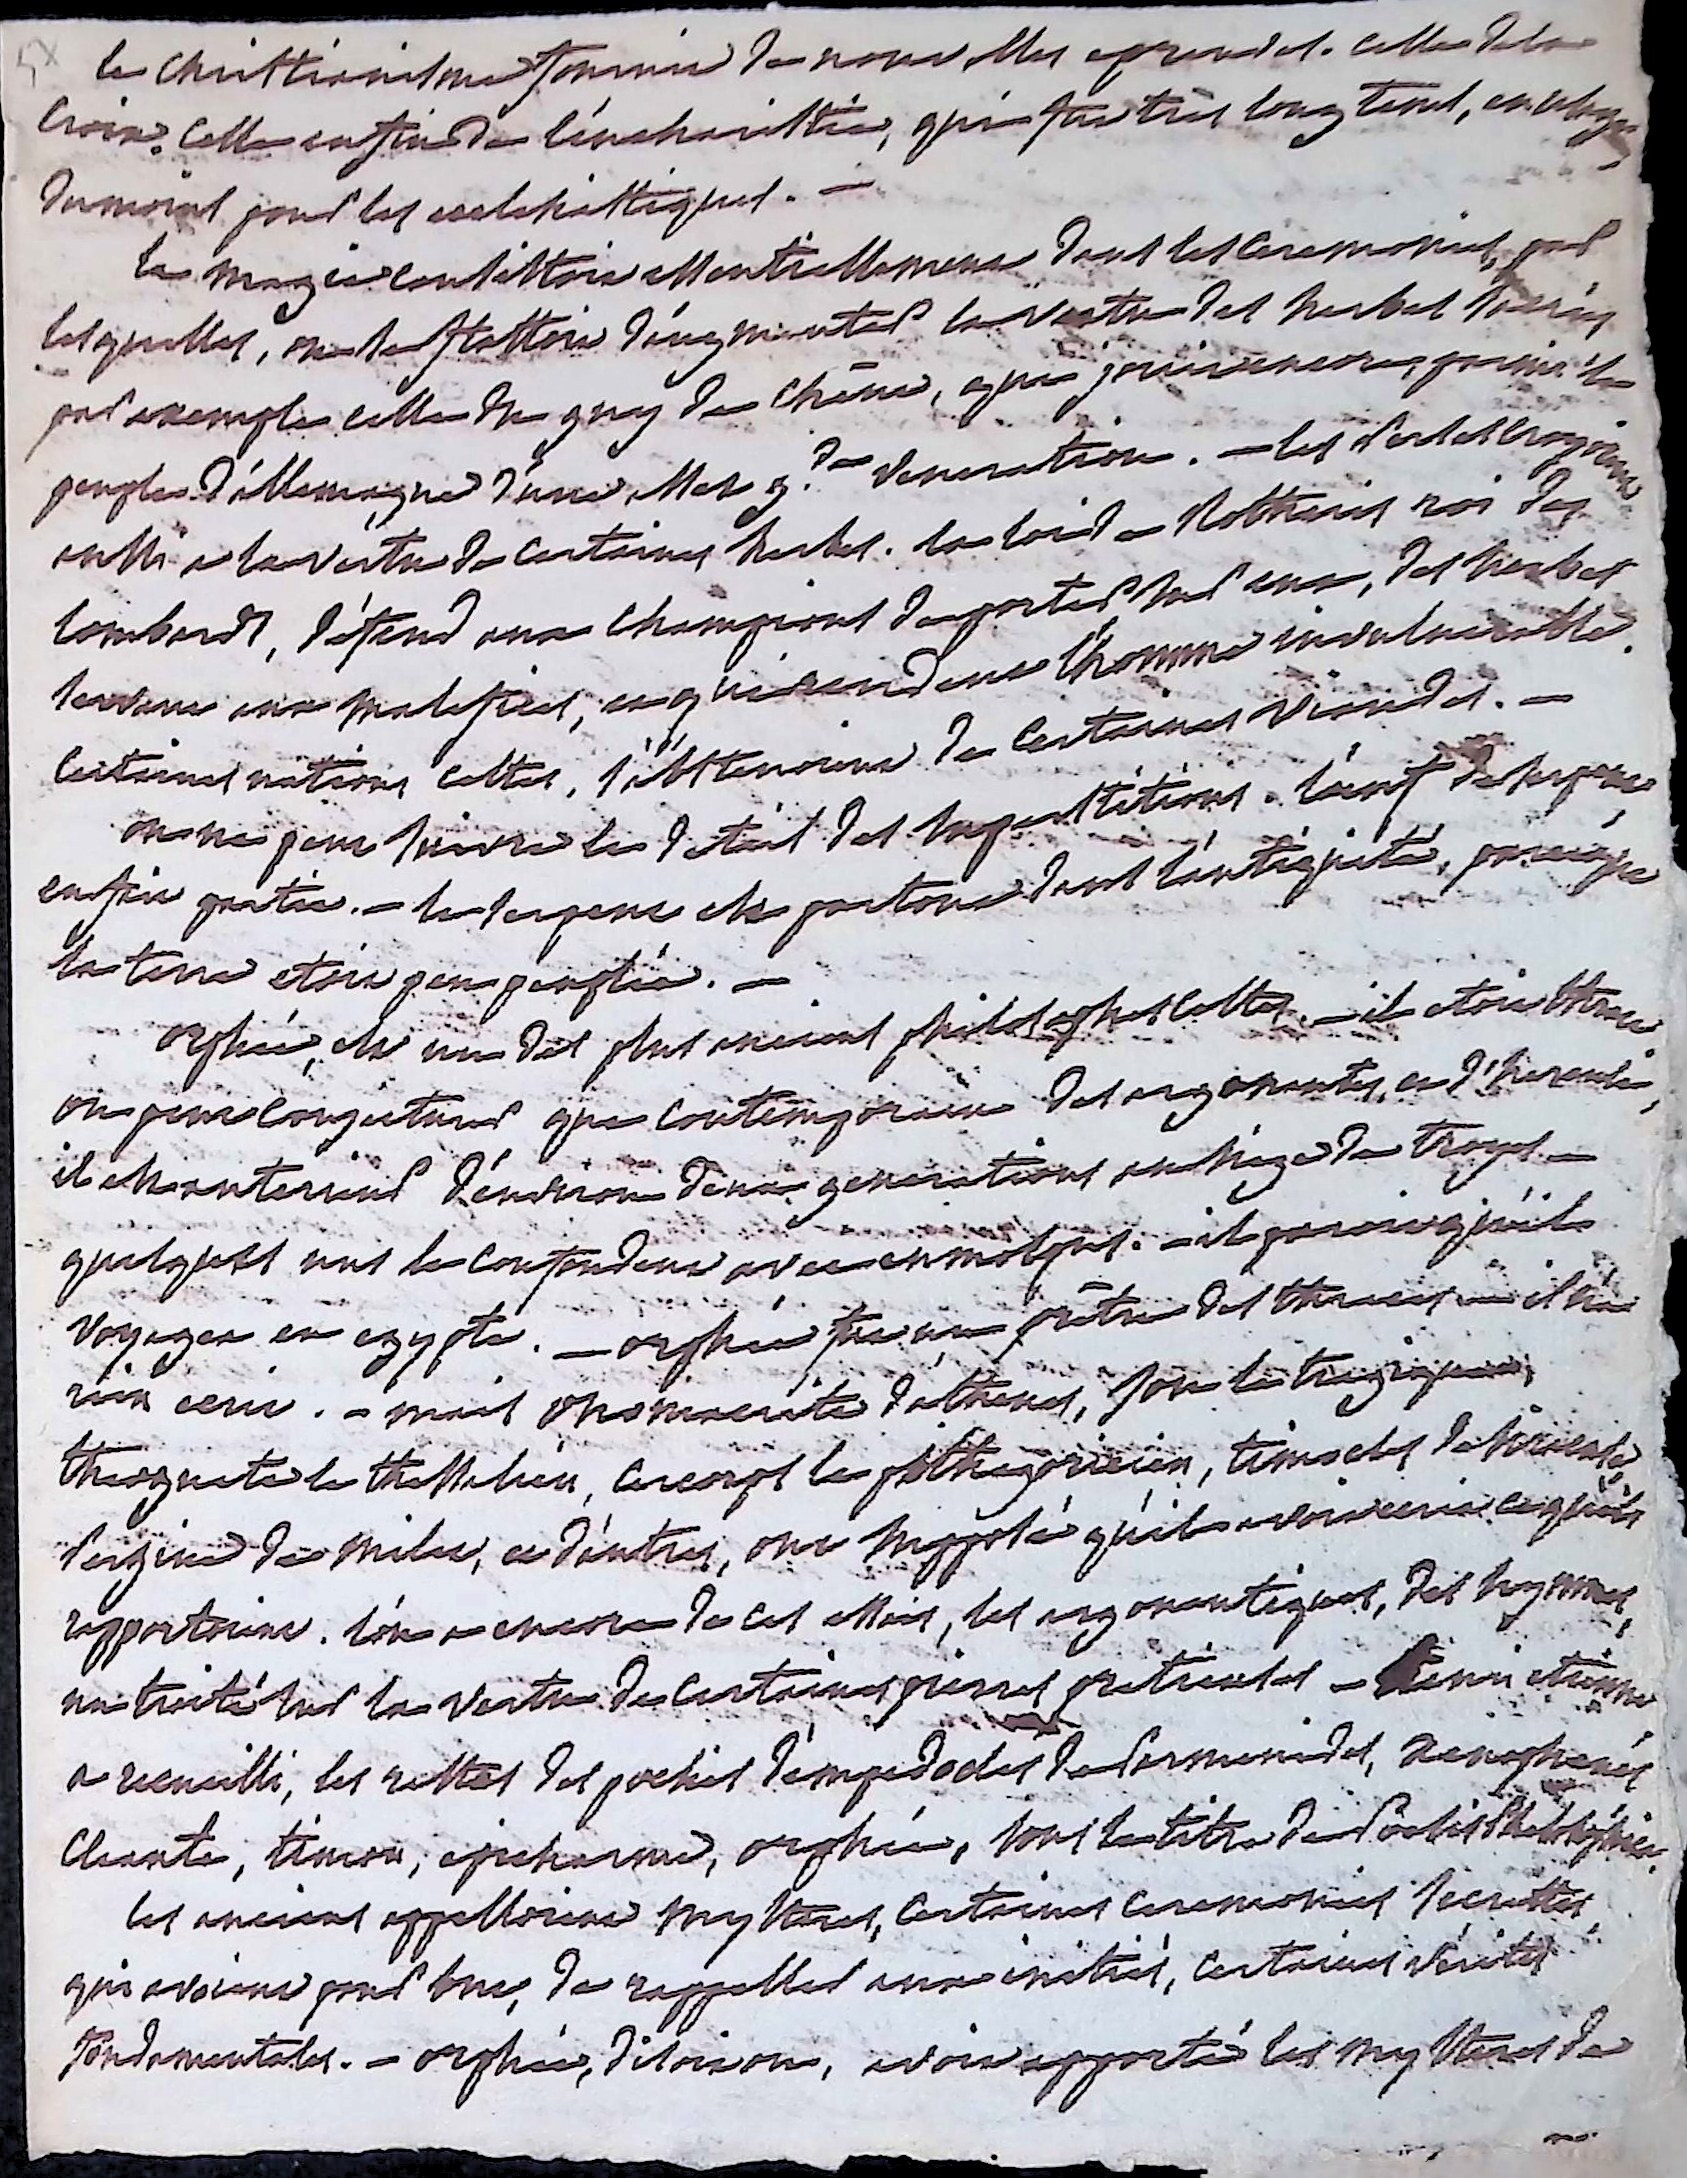 le christianisme fournit de nouvelles epreuves. celle de la
croix. celle enfin de l'eucharistie, qui fut très long tems, en usage,
du moins pour les ecclesiastiques. —
la magie consistoit essentiellement dans les ceremonies, par
lesquelles, on se flattoit d'augmenter la vertu des herbes sacrées
par exemple celle du guy de chêne, qui jouit encore, parmi le
peuple d'allemagne d'une assez g.de veneration. — les perses croyoient
aussi a la vertu de certaines herbes. la loi de Rotharis roi des
lombards, défend aux champions de porter sur eux, des herbes
servant aux malefices, et qui rendent l'homme invulnerable.
certaines nations celtes, s'abstenoient de certaines viandes. —
on ne peut suivre le detail des superstitions. l'œuf de serpent
en fait partie. — le serpent est partout dans l'antiquité, parceque
la terre etoit peu peuplée. —
orphée, est un des plus anciens philosophes celtes. — il etoit thrace,
on peut conjecturer que contemporain des argonautes, et d'hercule,
il est anterieur d'environ deux generations au siège de troye. —
quelques uns le confondent avec eumolpus. — il paroit qu'il
voyagea en egypte. — orphée fut un prêtre des thraces — il n'a
rien ecrit. — mais onomacrite d'athenes, Jon le tragique,
theognete le thessalien, cercops le pithagoricien, timocles de siracuse,
persine de milet, et d'autres, ont supposé qu'il avoit ecrit ce qu'ils
rapportoient. l'on a encore de ces essais, les argonautiques, des hymnes,
un traité sur la vertu de certaines pierres pretieuses — henri etienne
a recueilli, les restes des poesies d'empedocles de Parmenides, Xenophanes
Cleante, timon, epicharme, orphée, sous le titre de Poesis Philosophica.
les anciens appelloient mysteres, certaines ceremonies secrettes,
qui avoient pour but, de rappeller aux initiés, certaines vérités
fondamentales. — orphée, disoit on, avoit apporté les mysteres de